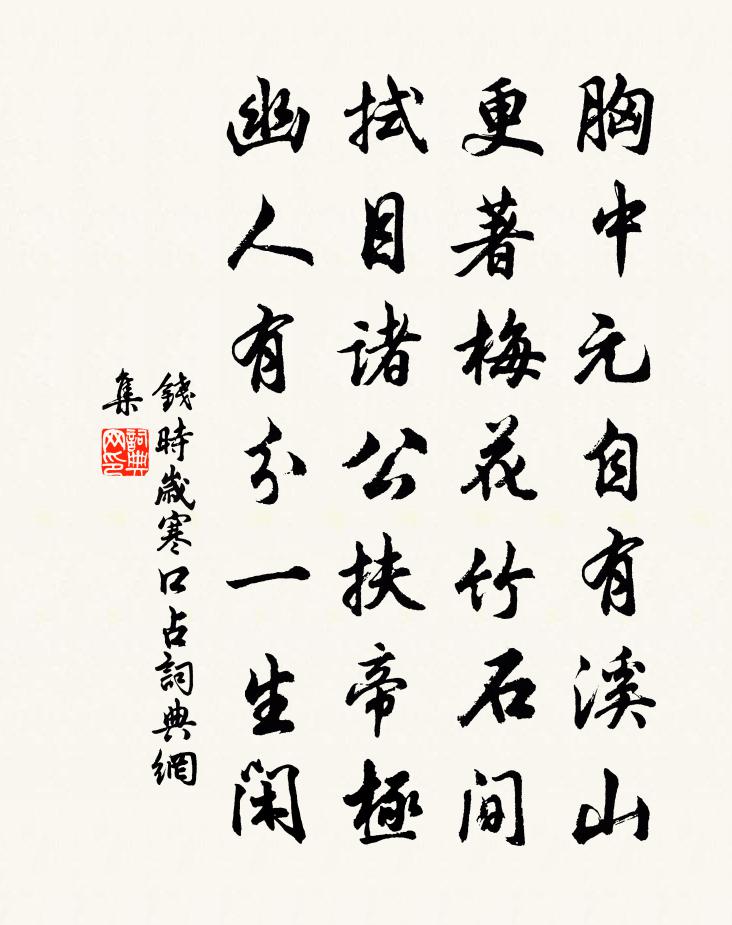 胸中元自有溪山
更著梅花竹石間
拭目諸公扶帝極
幽人有分一生閑
錢時歲寒口占詞典網
集
詞典
网印